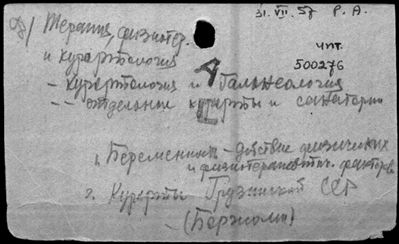 31. VII. 57 P. A.
чит.
500276
Терапия, физиотер.
и курортология
- курортология и бальнеология
- - отдельные курорты и санатории
1. Беременность - действие физических
и физиотерапевтич. факторов
2. Курорты Грузинской ССР
- (Боржоми)